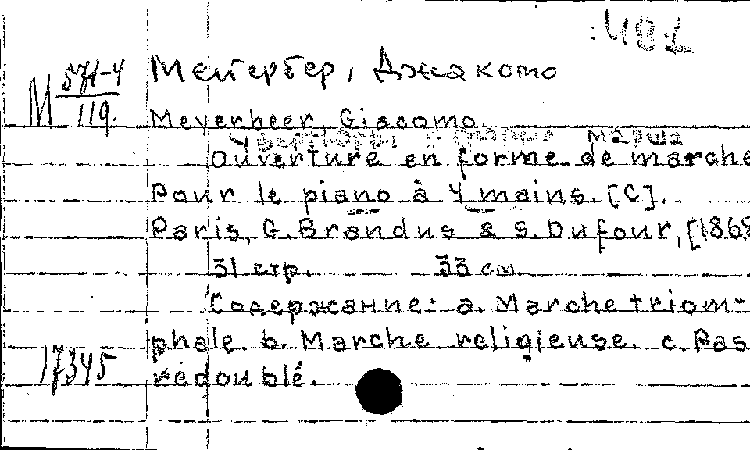 :481
М 571-4
119.
Мейербер, Джакомо
Meyerbeer Giacomo.
Увертюра в форме марша
Ouverture en forme de marche
Pour le piano à 4 mains. [C].
Paris, G. Brandus & S. Dufour, [1868
31 стр. 33 см
Содержание: a. Marche triom-
phale b. Marche religieuse. c. Pas
17345 redoublé.